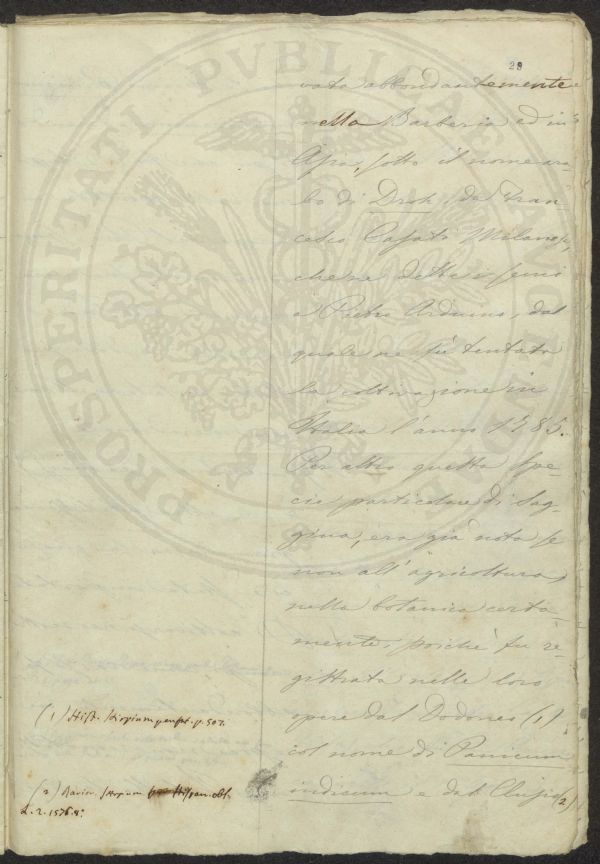 29
vata abbondantemente
nella Barberia ed in
Asia, sotto il nome ara-
bo di Drok, da Fran-
cesco Casati Milanese,
che ne dette i semi
a Pietro Arduino, dal
quale ne fù tentata
la coltivazione in
Italia l'anno 1785.
Per altro questa spe-
cie particolare di sag-
gina, era già nota se
non all'agricoltura,
nella botanica certa-
mente, poichè fu re-
gistrata nelle loro
opere dal Dodoneo (1)
col nome di Panicum
indicum e dal Clusio (2)
(1) Hist. stirpium p. 507.
(2) Rarior. stirpium Hispan. obs.
L. 2. 1576. 8°
PROSPERITATI PVBLICAE AVGENDAE